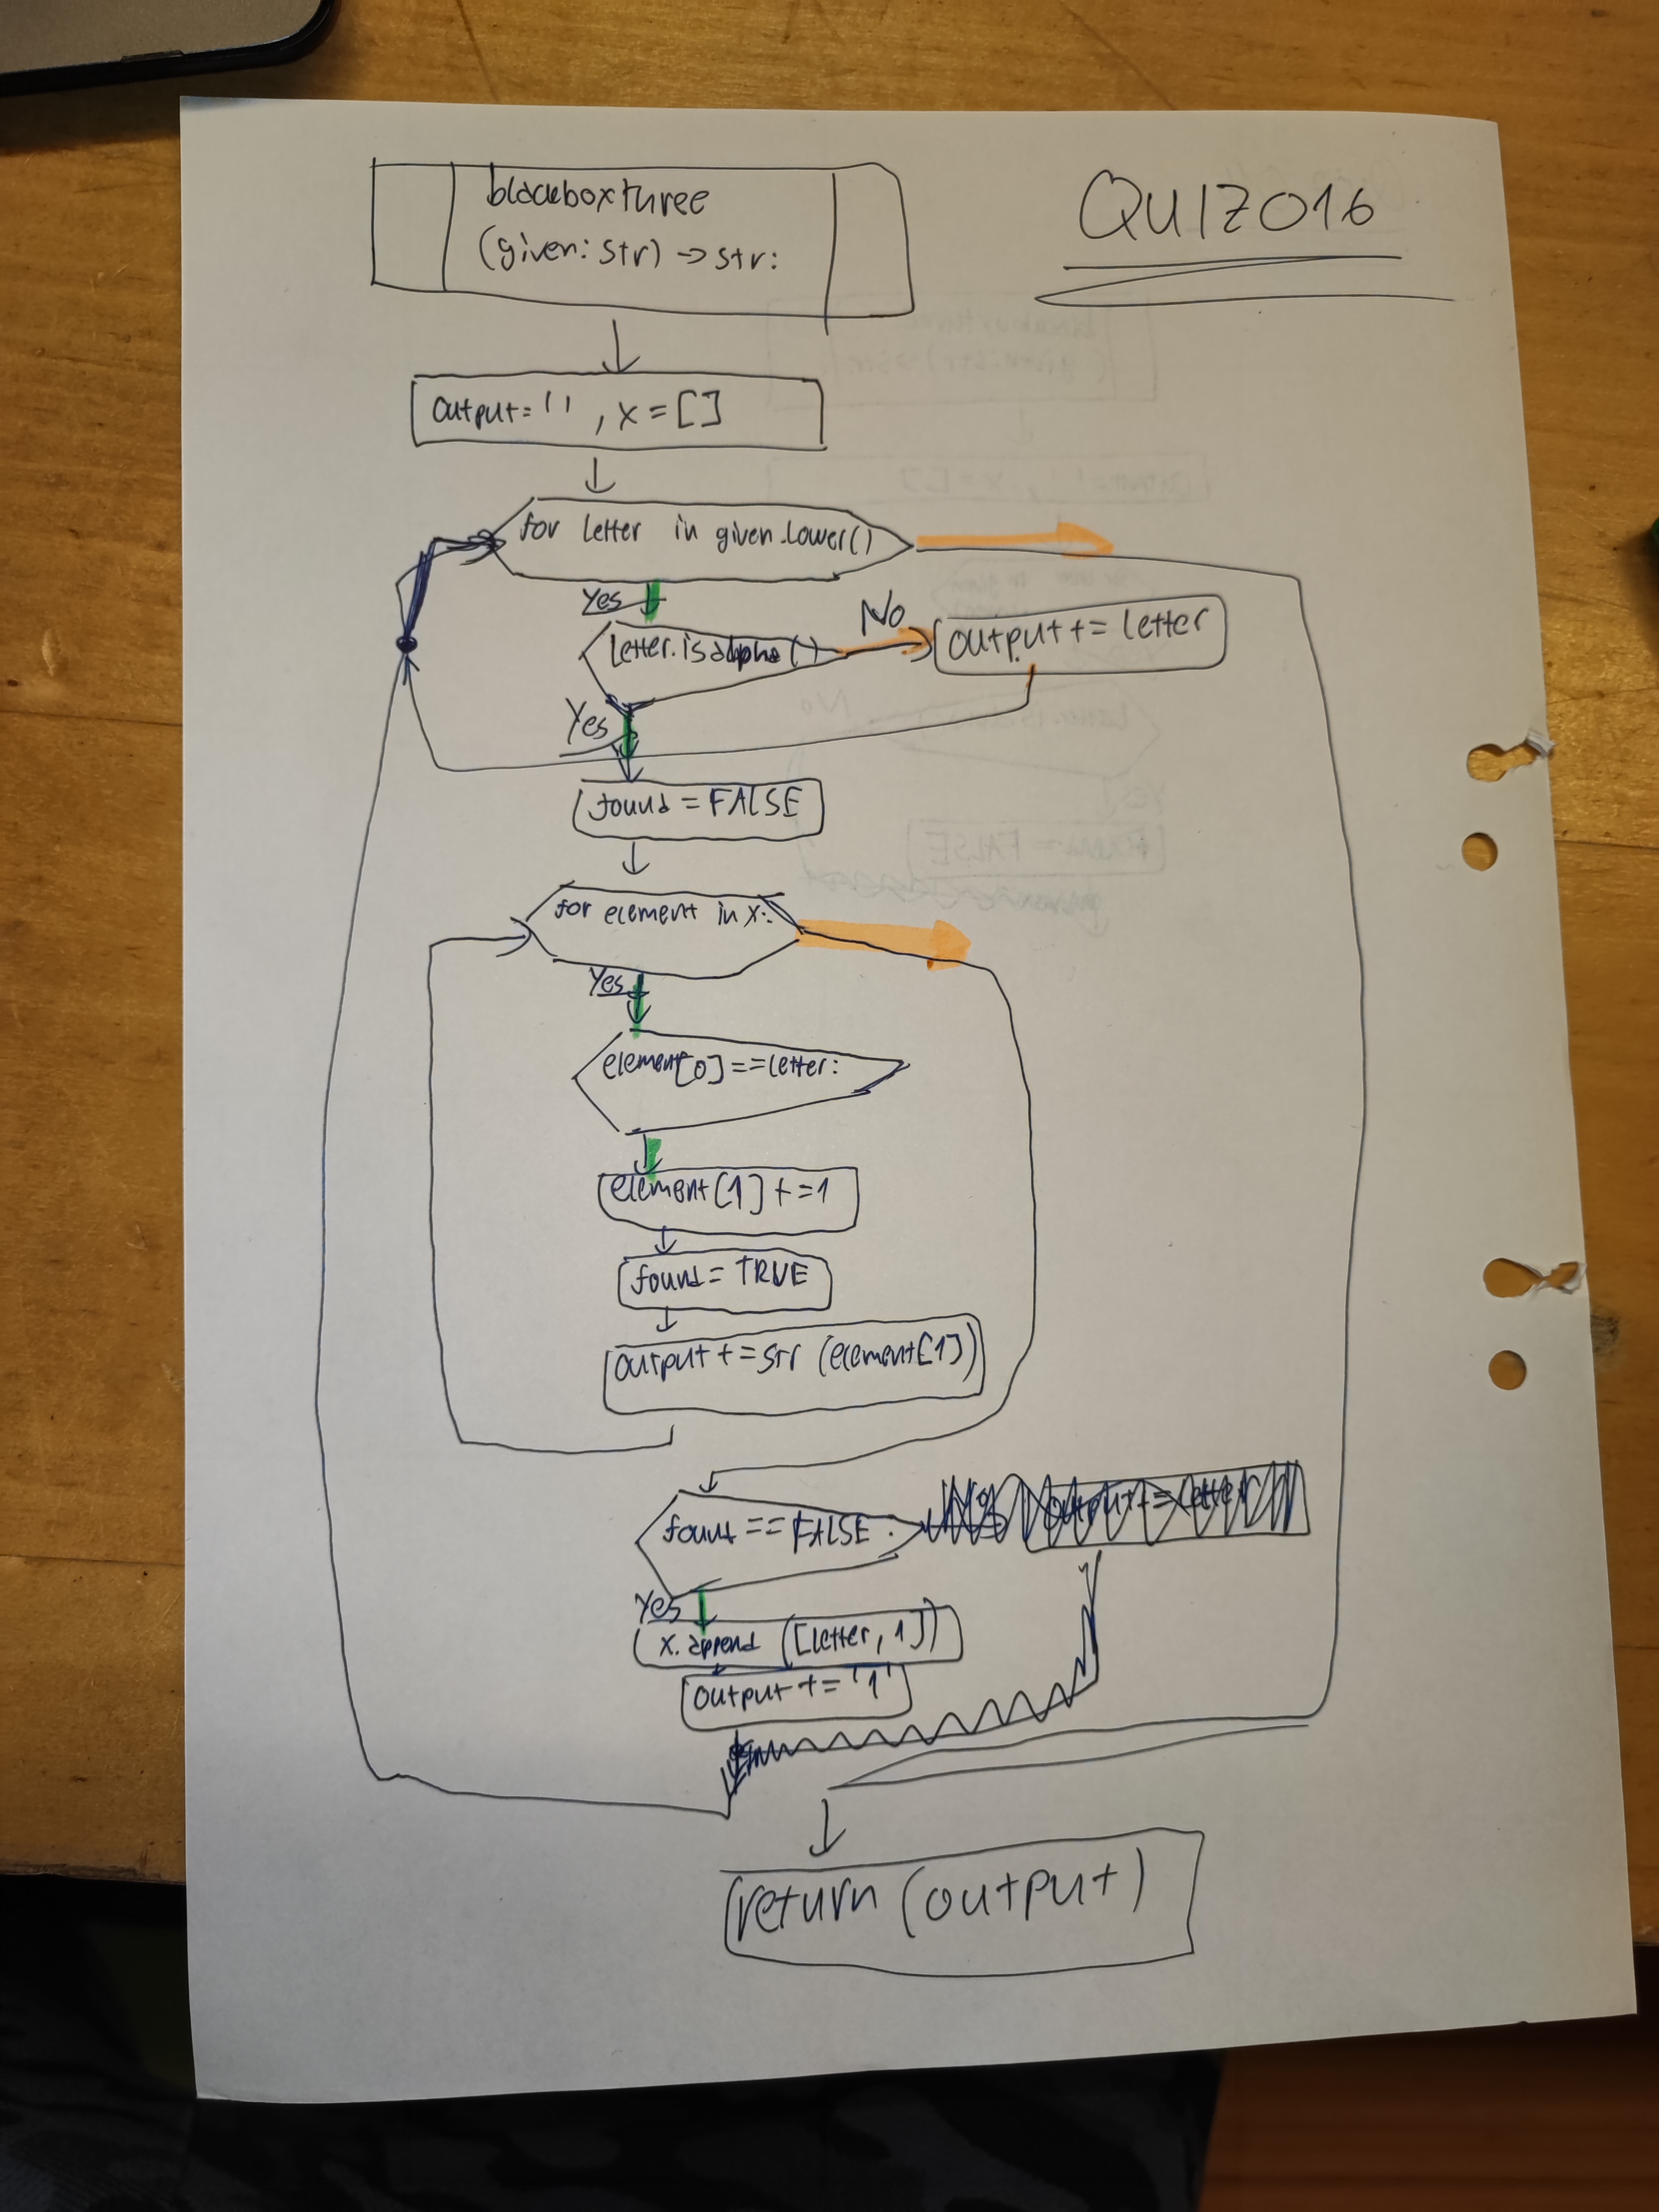 blackboxthree
(given: str) -> str:
QUIZ016
output = '' , x = []
for letter in given.lower()
Yes
letter.isalpha()
No
output += letter
Yes
found = FALSE
for element in x:
Yes
element[0] == letter:
element[1] += 1
found = TRUE
output += str (element[1])
found == FALSE :
Yes
x.append ([letter, 1])
output += '1'
return (output)